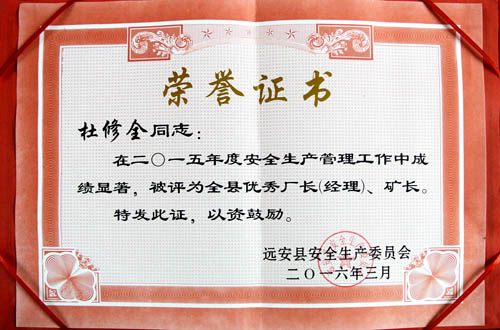 荣誉证书
杜修全同志：
在二〇一五年度安全生产管理工作中成
绩显著，被评为全县优秀厂长(经理)、矿长。
特发此证，以资鼓励。
远安县安全生产委员会
二〇一六年三月